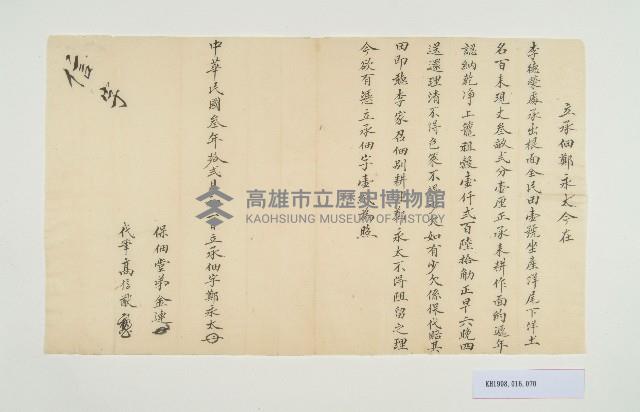 立承佃鄭永太今在
李德榮處承出根面全民田壹號坐產洋尾下洋土
名百未現丈叁畝弍分壹厘正承來耕作面約遞年
認納乾淨上籠租穀壹仟弍百陸拾觔正早六晚四
送還理清不得色策不欠如有少欠係保代賠其
田即聽李家召佃別耕鄭永太不得阻留之理
今欲有憑立承佃字壹為照
中華民國叁年拾弍月日立承佃字鄭永太
保佃堂弟金連
代筆高信
信字
高雄市立歷史博物館
KAOHSIUNG MUSEUM OF HISTORY
KH1908.016.070